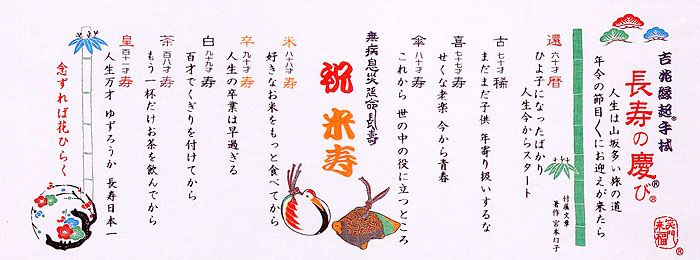 吉兆縁起手拭
長寿の慶び®
人生は山坂多い旅の道
年令の節目〱にお迎えが来たら
還六十才暦
ひよ子になったばかり
人生今からスタート
古七十才稀
まだまだ子供 年寄り扱いするな
喜七十七才寿
せくな老楽 今から青春
傘八十才寿
これから 世の中の役に立つところ
無病息災延命長壽
祝 米寿
米八十八才寿
好きなお米をもっと食べてから
卒九十才寿
人生の卒業は早過ぎる
白九十九才寿
百才でくぎりを付けてから
茶百八才寿
もう一杯だけお茶を飲んでから
皇百十一才寿
人生万才 ゆずろうか 長寿日本一
念ずれば花ひらく
付属文章
著作 宮本幻子
笑門来福
®